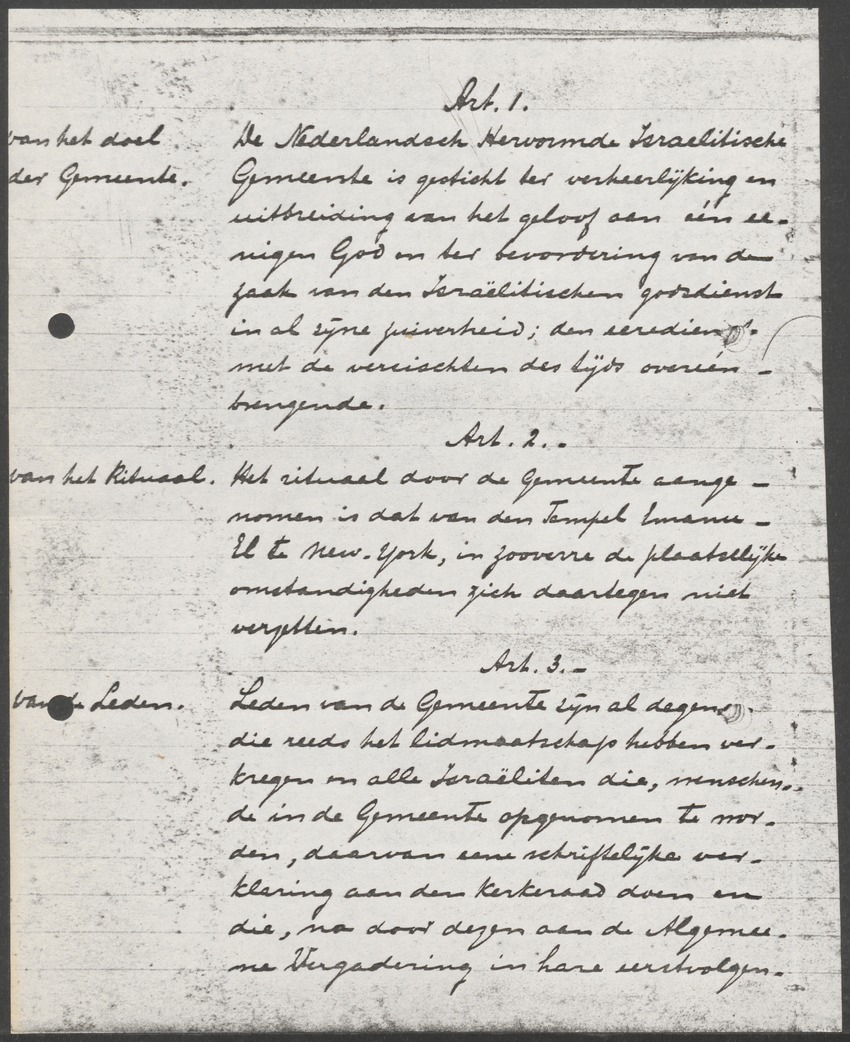 Art. 1.
van het doel
der Gemeente.
De Nederlandsch Hervormde Israelitische
Gemeente is gesticht ter verheerlijking en
uitbreiding van het geloof aan één ee-
nigen God en ter bevordering van de
zaak van den Israëlitischen godsdienst
in al zijne zuiverheid; den eeredienst
met de vereischten des tijds overeén-
brengende.
Art. 2.-
van het Rituaal.
Het rituaal door de Gemeente aange-
nomen is dat van den Tempel Emanu-
El te New-York, in zooverre de plaatselijke
omstandigheden zich daartegen niet
verzetten.
Art. 3.-
van de Leden.
Leden van de Gemeente zijn al degenen
die reeds het lidmaatschap hebben ver-
kregen en alle Israëliten die, wenschen-
de in de Gemeente opgenomen te wor-
den, daarvan eene schriftelijke ver-
klaring aan den Kerkeraad doen en
die, na door dezen aan de Algemee-
ne Vergadering in hare eerstvolgen-